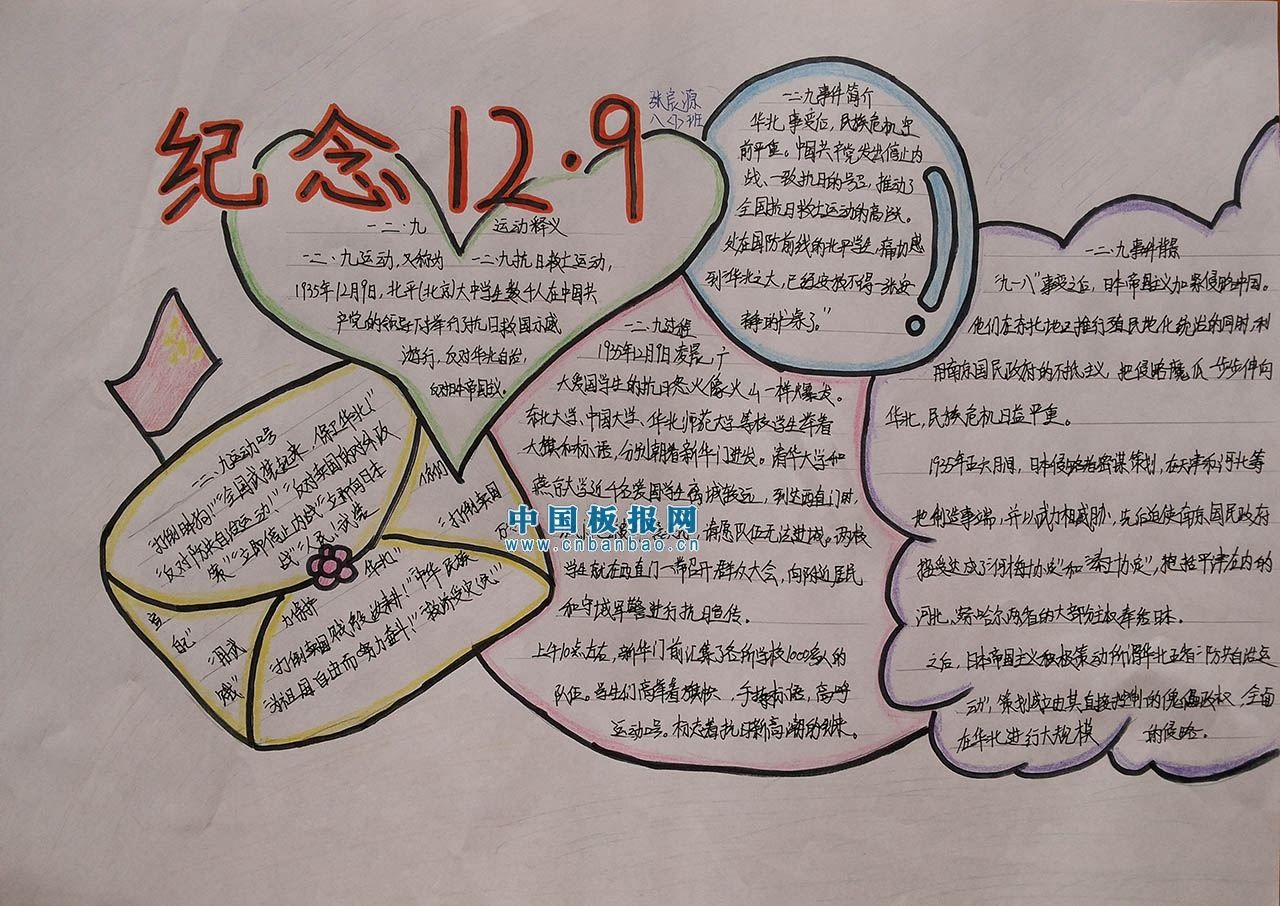 纪念12.9
张宸源
八〈7〉班
一二·九 运动释义
一二·九运动，又称为一二·九抗日救亡运动，
1935年12月9日，北平(北京)大中学生数千人在中国共
产党的领导下举行了抗日救国示威
游行，反对华北自治，
反对日本帝国主义。
一二·九事件简介
华北事变后，民族危机空
前严重。中国共产党发出停止内
战、一致抗日的号召，推动了
全国抗日救亡运动的高涨。
处在国防前线的北平学生，痛切感
到"华北之大，已经安放不得一张安
静的书桌了。"
一二·九过程
1935年12月9日凌晨，广
大爱国学生的抗日怒火像火山一样爆发。
东北大学、中国大学、华北师范大学等校学生举着
大旗和标语，分别朝着新华门进发。清华大学和
燕京大学近千名爱国学生离城较远，到达西直门时
请愿队伍无法进城。两校
学生就在西直门一带召开群众大会，向附近居民
和守城军警进行抗日宣传。
上午10点左右，新华门前汇集了各所学校1000多人的
队伍。学生们高举着旗帜，手持标语，高呼
运动口号。标志着抗日新高潮的到来。
一二·九事件背景
"九一八"事变之后，日本帝国主义加紧侵略中国。
他们在东北地区推行殖民地化统治的同时，利
用南京国民政府的不抵主义，把侵略魔爪一步步伸向
华北，民族危机日益严重。
1935年五六月间，日本侵略者密谋策划，在天津和河北等
地制造事端，并以武力相威胁，先后迫使南京国民政府
接受达成了"何梅协定"和"秦土协定"，把包括平津在内的
河北、察哈尔两省的大部分主权奉给日本。
之后，日本帝国主义积极策动所谓华北五省"防共自治运
动"，策划成立由其直接控制的傀儡政权，全面
在华北进行大规模 的侵略。
一二·九运动口号
"全国武装起来，保卫华北！"
"反对防共自治运动""反对卖国的对外政
策""立即停止内战""立即向日本
华北"
"打倒卖国贼殷汝耕！""中华民族
为祖国自由而努力奋斗！"
"打倒卖国
"用武
中国板报网
www.cnbanbao.cn